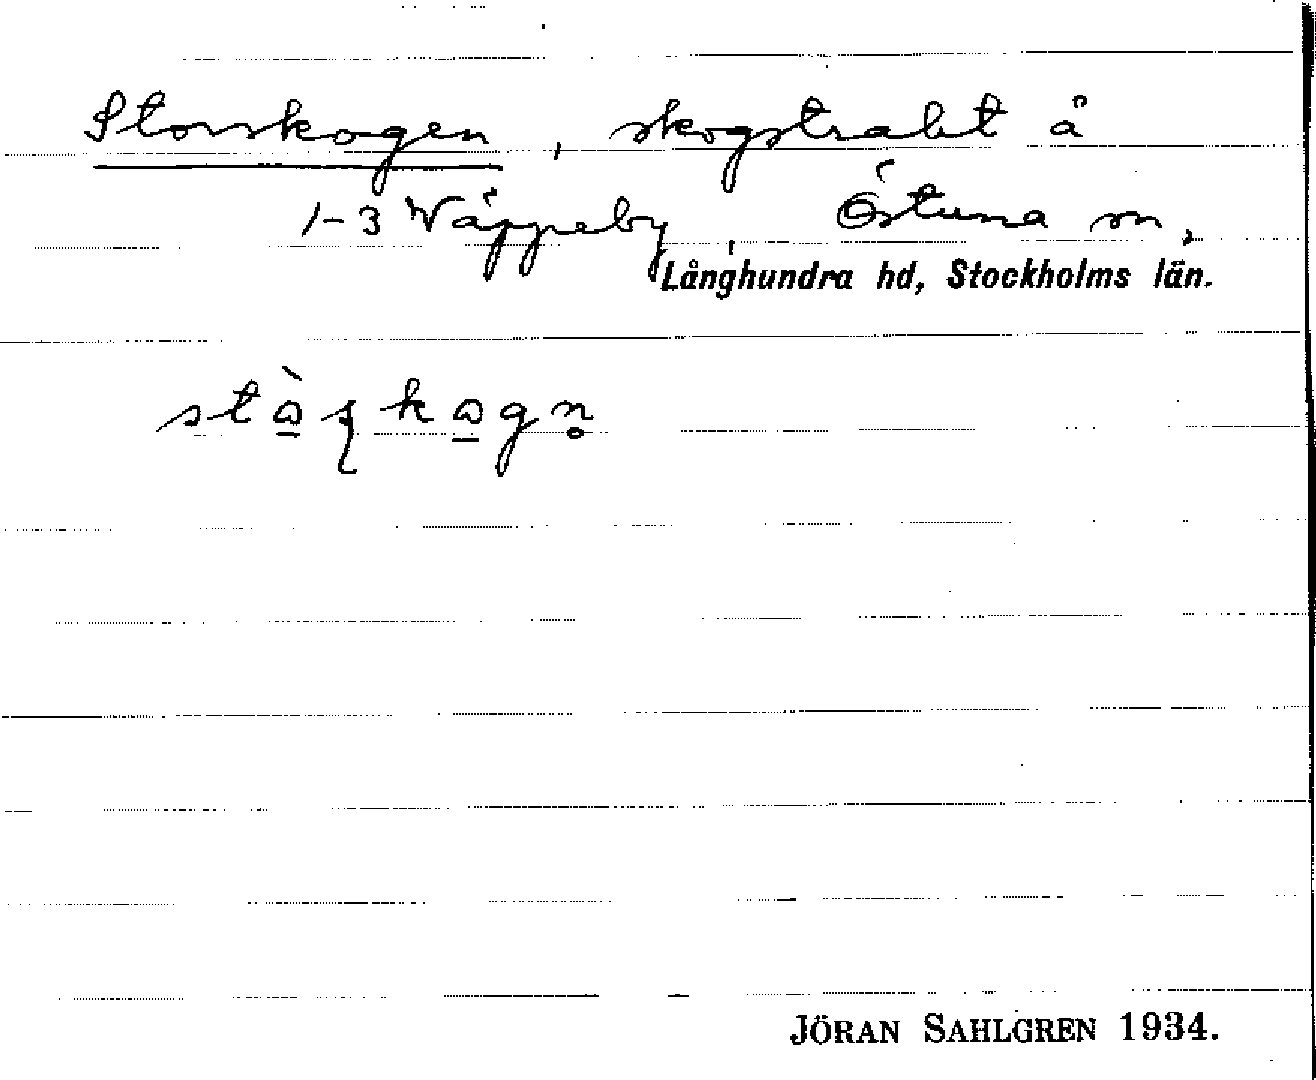 Storskogen, skogstrakt å
1-3 Wäppeby, Östuna sn,
Långhundra hd, Stockholms län.
JÖRAN SAHLGREN 1934.